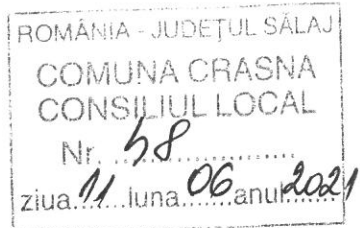 ROMÂNIA - JUDEȚUL SĂLAJ
COMUNA CRASNA
CONSILIUL LOCAL
Nr. 58
ziua 11 luna 06 anul 2021